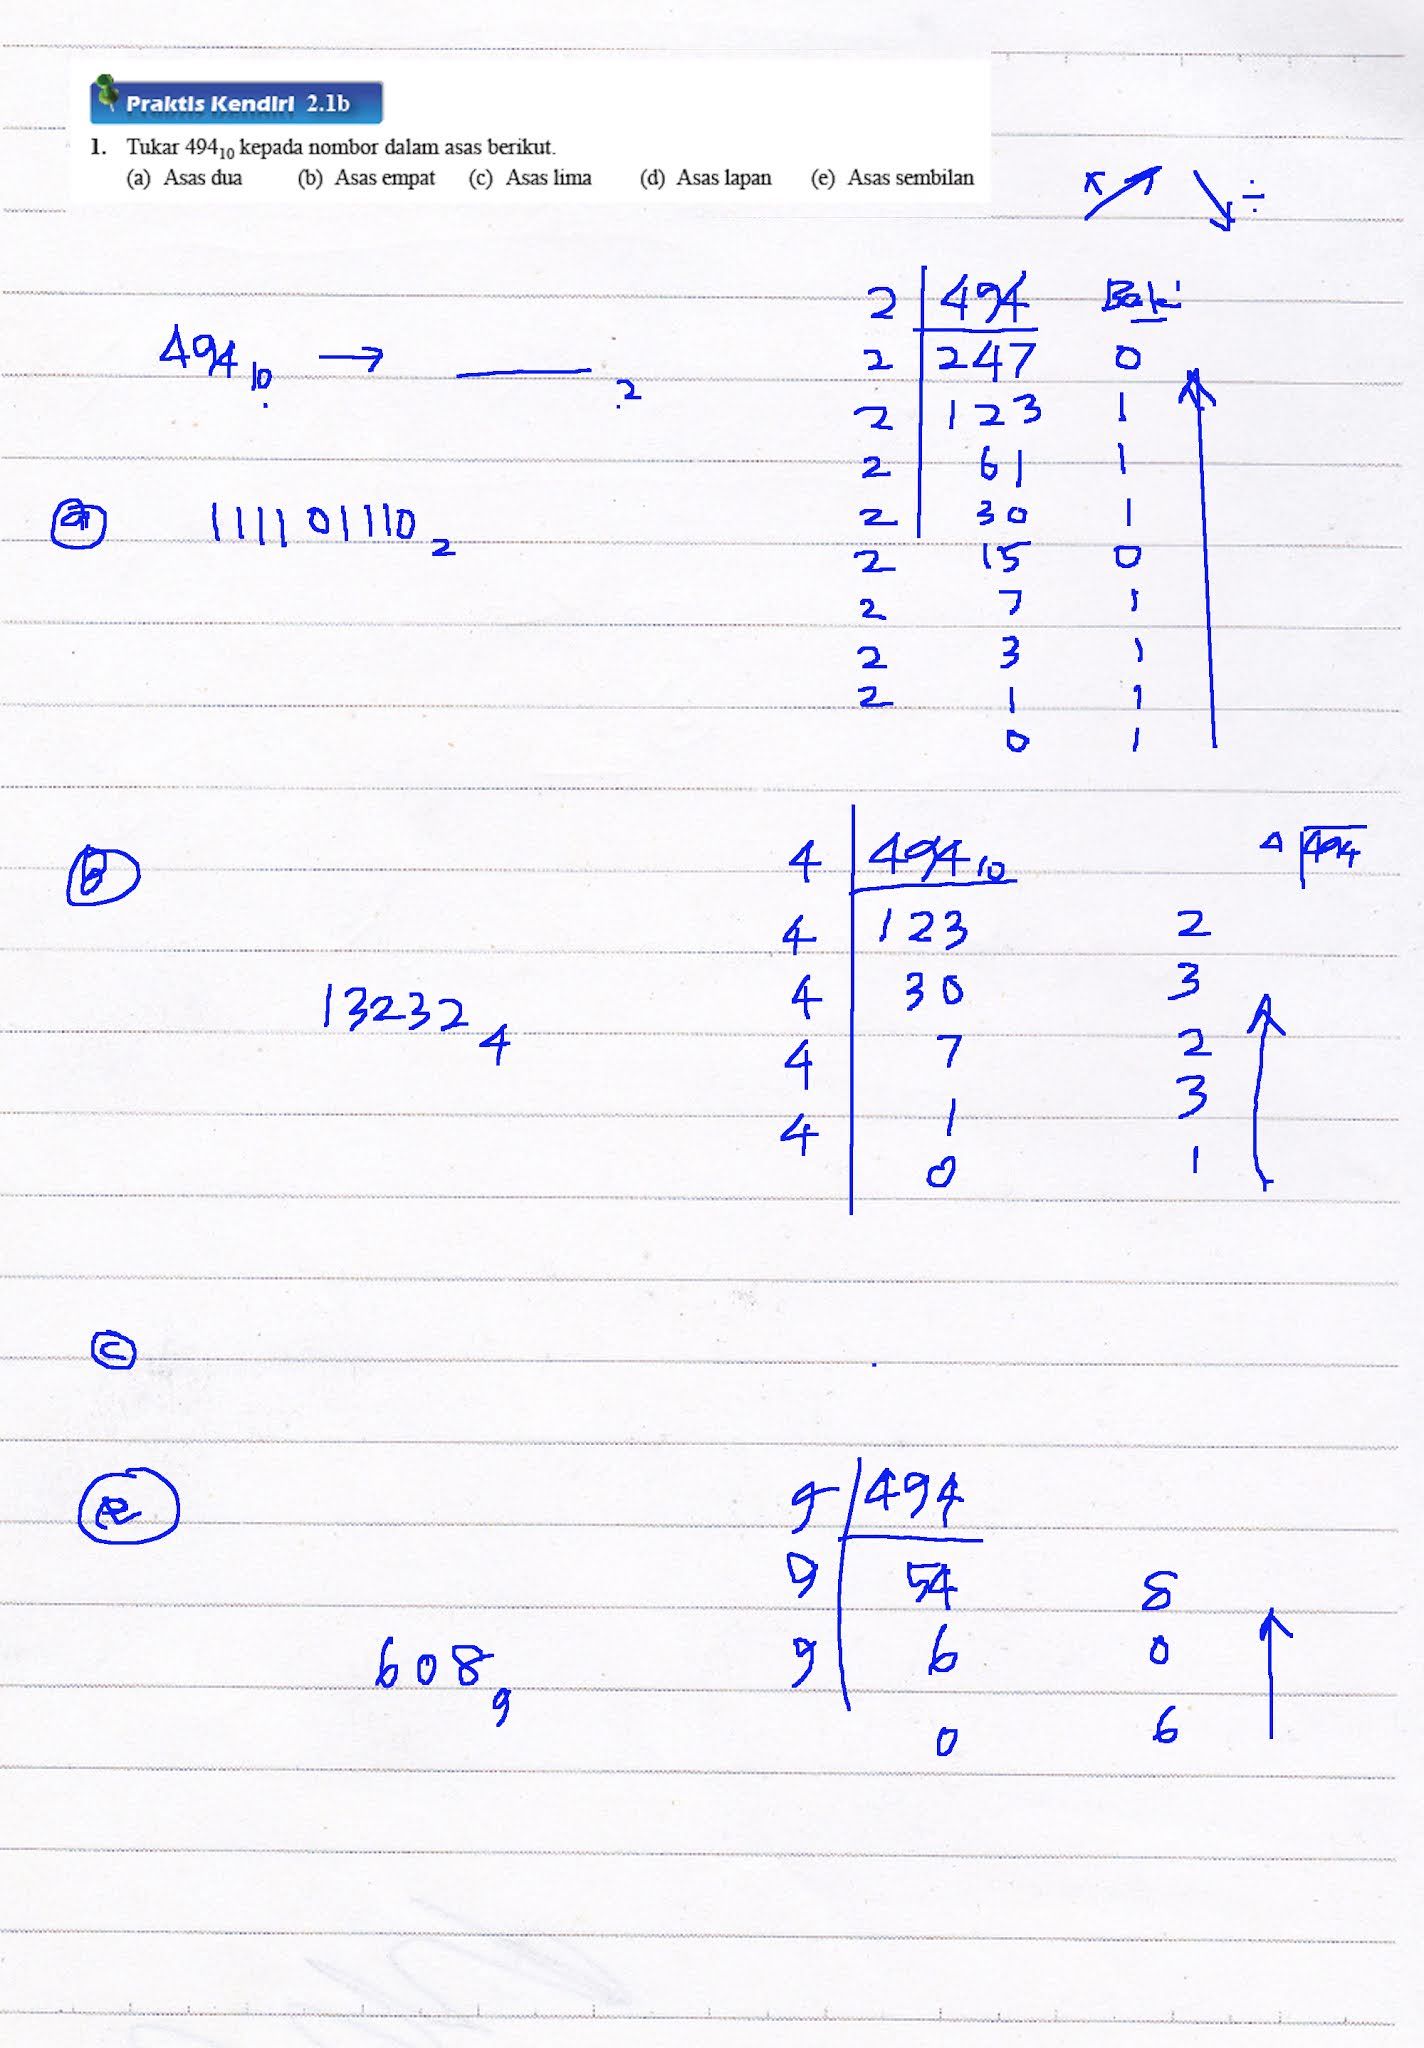 Praktis Kendiri 2.1b
1. Tukar 494₁₀ kepada nombor dalam asas berikut.
(a) Asas dua (b) Asas empat (c) Asas lima (d) Asas lapan (e) Asas sembilan
× ÷
494₁₀ → ____ ₂
2 494 Baki
2 247 0
2 123 1
2 61 1
2 30 1
2 15 0
2 7 1
2 3 1
2 1 1
0 1
a 111101110₂
b
4 494₁₀ 4 494
4 123 2
4 30 3
4 7 2
4 1 3
0 1
13232₄
c
e
9 494
9 54 8
9 6 0
0 6
608₉